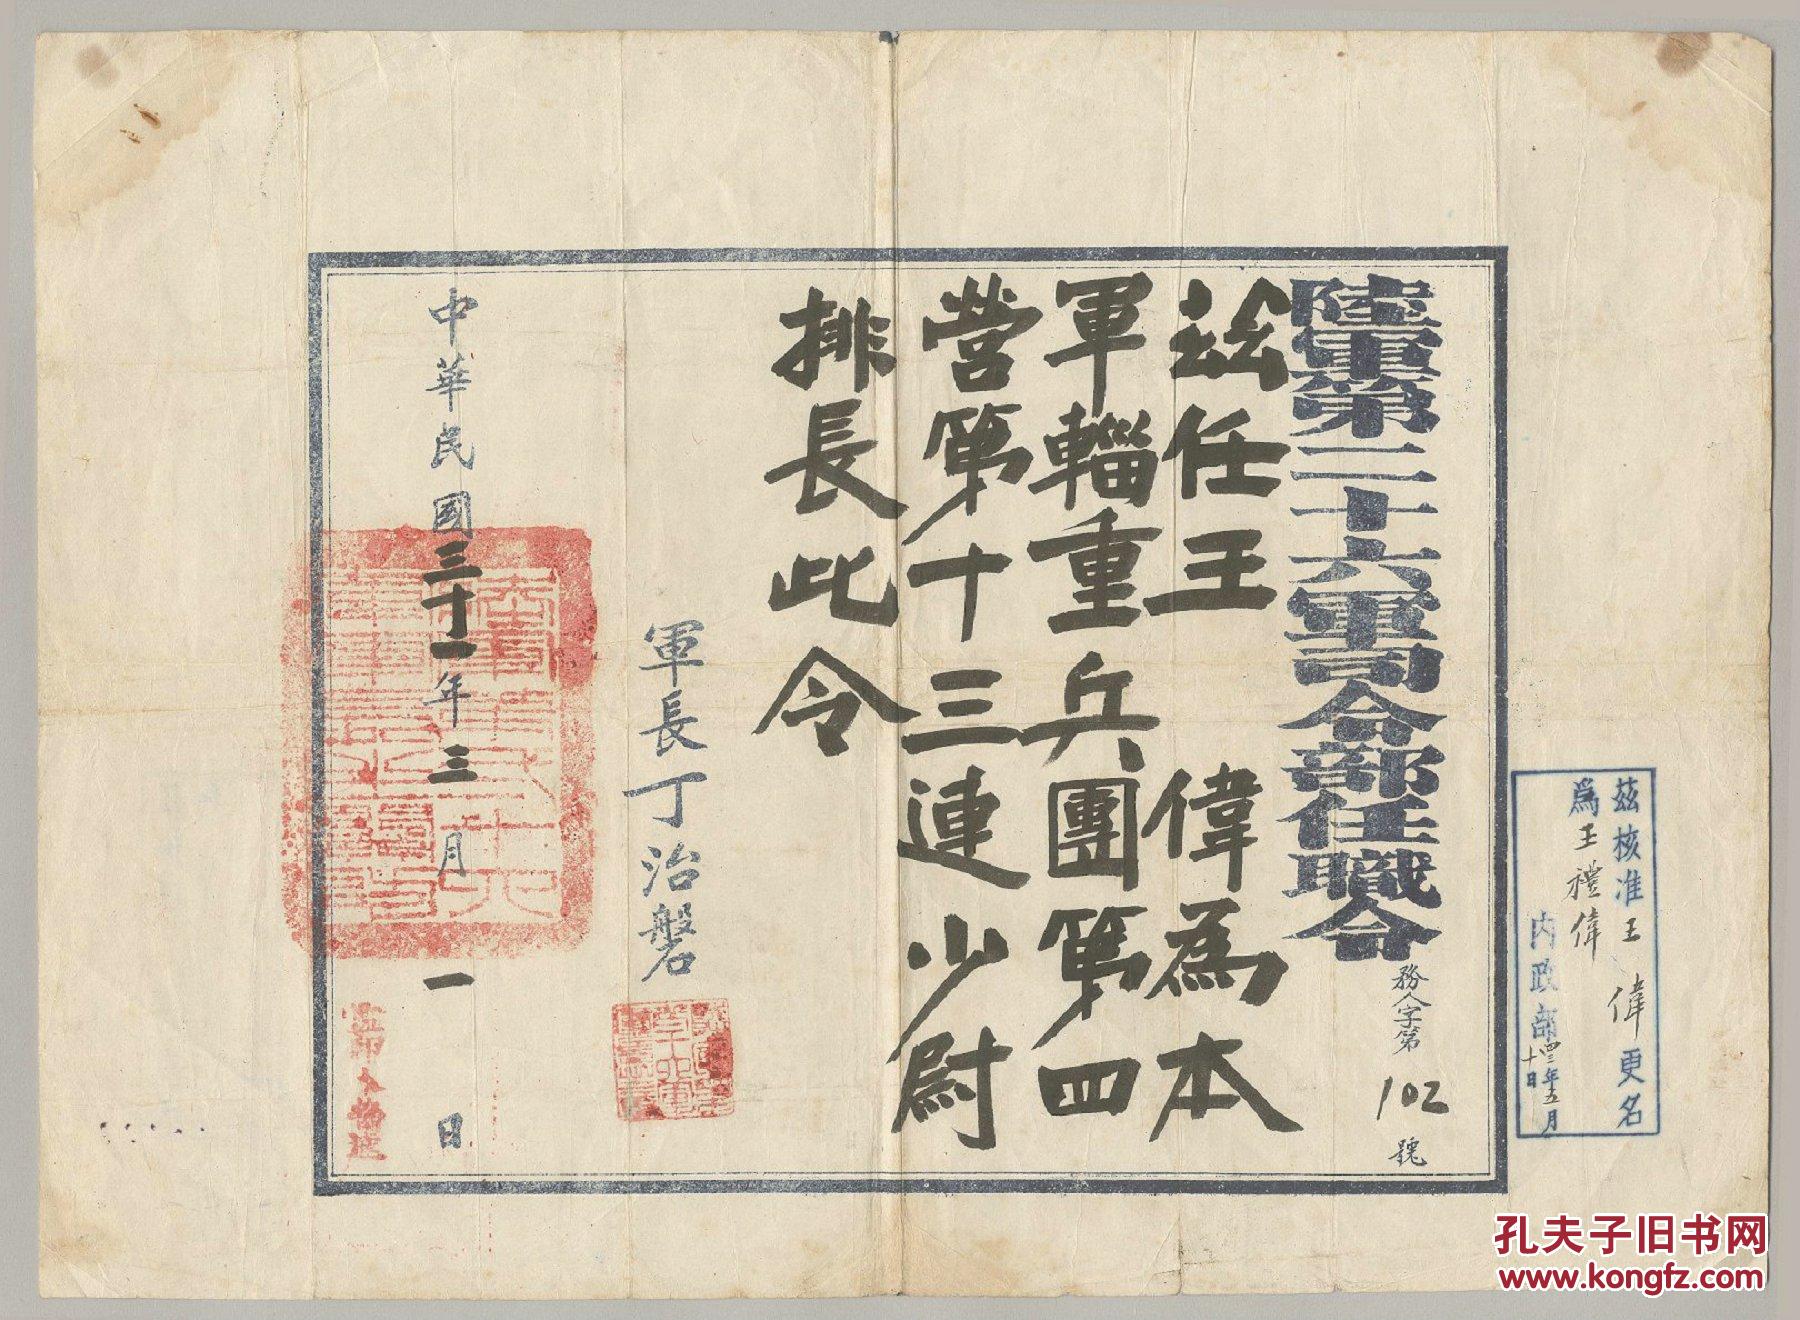 陸軍第二十六軍司令部任職令
務人字第102號
玆任王 偉為本
軍輜重兵團第四
營第十三連少尉
排長此令
軍長丁治磐
中華民國三十一年三月一日
茲核准王 偉更名
為王禮偉
內政部
四三年五月
十日
孔夫子旧书网
www.kongfz.com